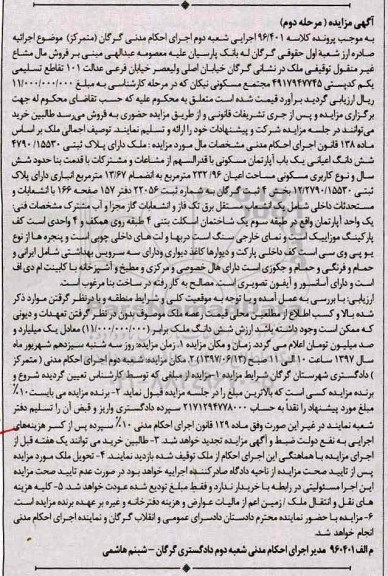 آگهی مزایده ( مرحله دوم )
به موجب پرونده کلاسه ۹۶/۴۰۱ اجرایی شعبه دوم اجرای احکام مدنی گرگان (متمرکز) موضوع اجرائیه
صادره از شعبه اول حقوقی گرگان له بانک پارسیان علیه معصومه عبدالهی مبنی بر فروش مال مشاع
غیر منقول توقیفی ملک در نشانی گرگان خیابان اصلی ولیعصر خیابان فرعی عدالت ۱۰۱ تقاطع تسلیمی
یکم کدپستی ۴۹۱۷۹۴۷۷۴۵ مجتمع مسکونی نیکان که در مرحله کارشناسی به مبلغ ۱۱/۰۰۰/۰۰۰/۰۰۰
ریال ارزیابی گردید برآورد قیمت شده است متعلق به محکوم علیه که حسب تقاضای محکوم له جهت
برگزاری مزایده و پس از جری تشریفات قانونی و از طریق مزایده حضوری به فروش می‌رسد طالبین خرید
می‌توانند در جلسه مزایده شرکت و پیشنهادات خود را ارائه و تسلیم نمایند. توصیف اجمالی ملک بر اساس
ماده ۱۳۸ قانون اجرای احکام مدنی مشخصات مال مورد مزایده : ملک دارای پلاک ثبتی ۴۷۹۰/۱۵۵۳۰
شش دانگ اعیانی یک باب آپارتمان مسکونی با قدرالسهم از مشاعات و مشترکات با قدمت بنا حدود شش
سال و نوع کاربری مسکونی مساحت اعیان ۲۳۲/۹۶ مترمربع به انضمام ۱۳/۶۷ مترمربع انباری دارای پلاک
ثبتی ۱۲/۲۷۹۰/۱۵۵۳۰ بخش ۴ ثبت گرگان به شماره ثبت ۲۲۰۵۶ دفتر ۱۵۷ صفحه ۱۶۶ با انشعابات و
مستحدثات داخلی شامل یک انشعاب مستقل برق تک فاز و انشعابات گاز مجزا و آب مشترک مشخصات فنی:
یک واحد آپارتمان واقع در طبقه سوم یک ساختمان اسکلت بتنی ۴ طبقه روی همکف و ۴ واحدی است کف
پارکینگ موزاییک است و نمای خارجی سنگ است دربها و لت های داخلی چوبی است و پنجره ها از نوع
یو پی وی سی است کف داخلی پارکت و دیوارها کاغذ دیواری ودارای سه سرویس بهداشتی شامل ایرانی و
حمام و فرنگی و حمام و جکوزی است دارای هال خصوصی و مرکزی و مطبخ و آشپزخانه با کابینت ام دی اف
است و دارای آسانسور و آیفون تصویری است. مصالح به کار رفته در ساخت بنا مرغوب است.
ارزیابی: با بررسی به عمل آمده و با توجه به موقعیت کلی و شرایط منطقه و با درنظر گرفتن موارد ذکر
شده بالا و کسب اطلاع از مطلعین محلی ارزش عرصه ملک موصوف بدون در نظر گرفتن تعهدات و دیونی
که ممکن است وجود داشته باشد ارزش شش دانگ ملک برابر (۱۱/۰۰۰/۰۰۰/۰۰۰) معادل یک میلیارد و
صد میلیون تومان اعلام می گردد. زمان و مکان مزایده ۱. زمان مزایده روز سه شنبه سیزدهم شهریور ماه
سال ۱۳۹۷ ساعت ۱۰ الی ۱۱ صبح (۱۳۹۷/۰۶/۱۳) ۲. مکان مزایده شعبه دوم اجرای احکام مدنی ( متمرکز
) دادگستری شهرستان گرگان شرایط مزایده ۱- مزایده از مبلغی که توسط کارشناس تعیین گردیده شروع و
برنده مزایده کسی است که بالاترین مبلغ را در جلسه مزایده قبول نماید ۲- برنده مزایده می بایست ۱۰٪
مبلغ مورد پیشنهاد را نقداً به حساب ۲۱۷۱۲۹۴۷۷۸۰۰۰ سپرده دادگستری واریز و قبض آن را تسلیم دفتر
شعبه نمایند در غیر این صورت وفق ماده ۱۲۹ قانون اجرای احکام مدنی ۱۰٪ سپرده پس از کسر هزینه‌های
اجرایی به نفع دولت ضبط و آگهی مزایده تجدید خواهد شد. ۳- طالبین خرید می توانند یک هفته قبل از
اجرای مزایده با هماهنگی این اجرای احکام از ملک توقیف شده بازدید نمایند. ۴- تحویل ملک مورد مزایده
پس از تایید صحت مزایده از ناحیه دادگاه صادرکننده اجراییه خواهد بود در صورت عدم تایید صحت مزایده
این اجرا مسئولیتی در رابطه با خریدار ندارد و فقط مبلغ تودیع شده عودت خواهد شد. ۵- کلیه هزینه
های نقل و انتقال ملک / زمین اعم از مالیات عوارض و هزینه دفترخانه و غیره بر عهده برنده مزایده است.
۶- مزایده با حضور نماینده محترم دادستان دادسرای عمومی و انقلاب گرگان و نماینده اجرای احکام مدنی
انجام خواهد شد.
م الف ۹۶۰۴۰۱ مدیر اجرای احکام مدنی شعبه دوم دادگستری گرگان – شبنم هاشمی